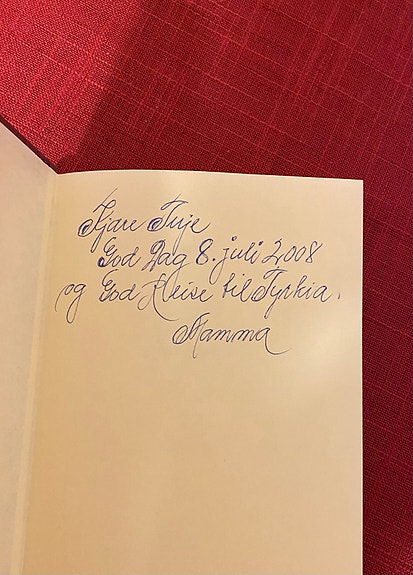 Kjære Turje
God Dag 8. juli 2008
og God Reise til Tyrkia.
Mamma